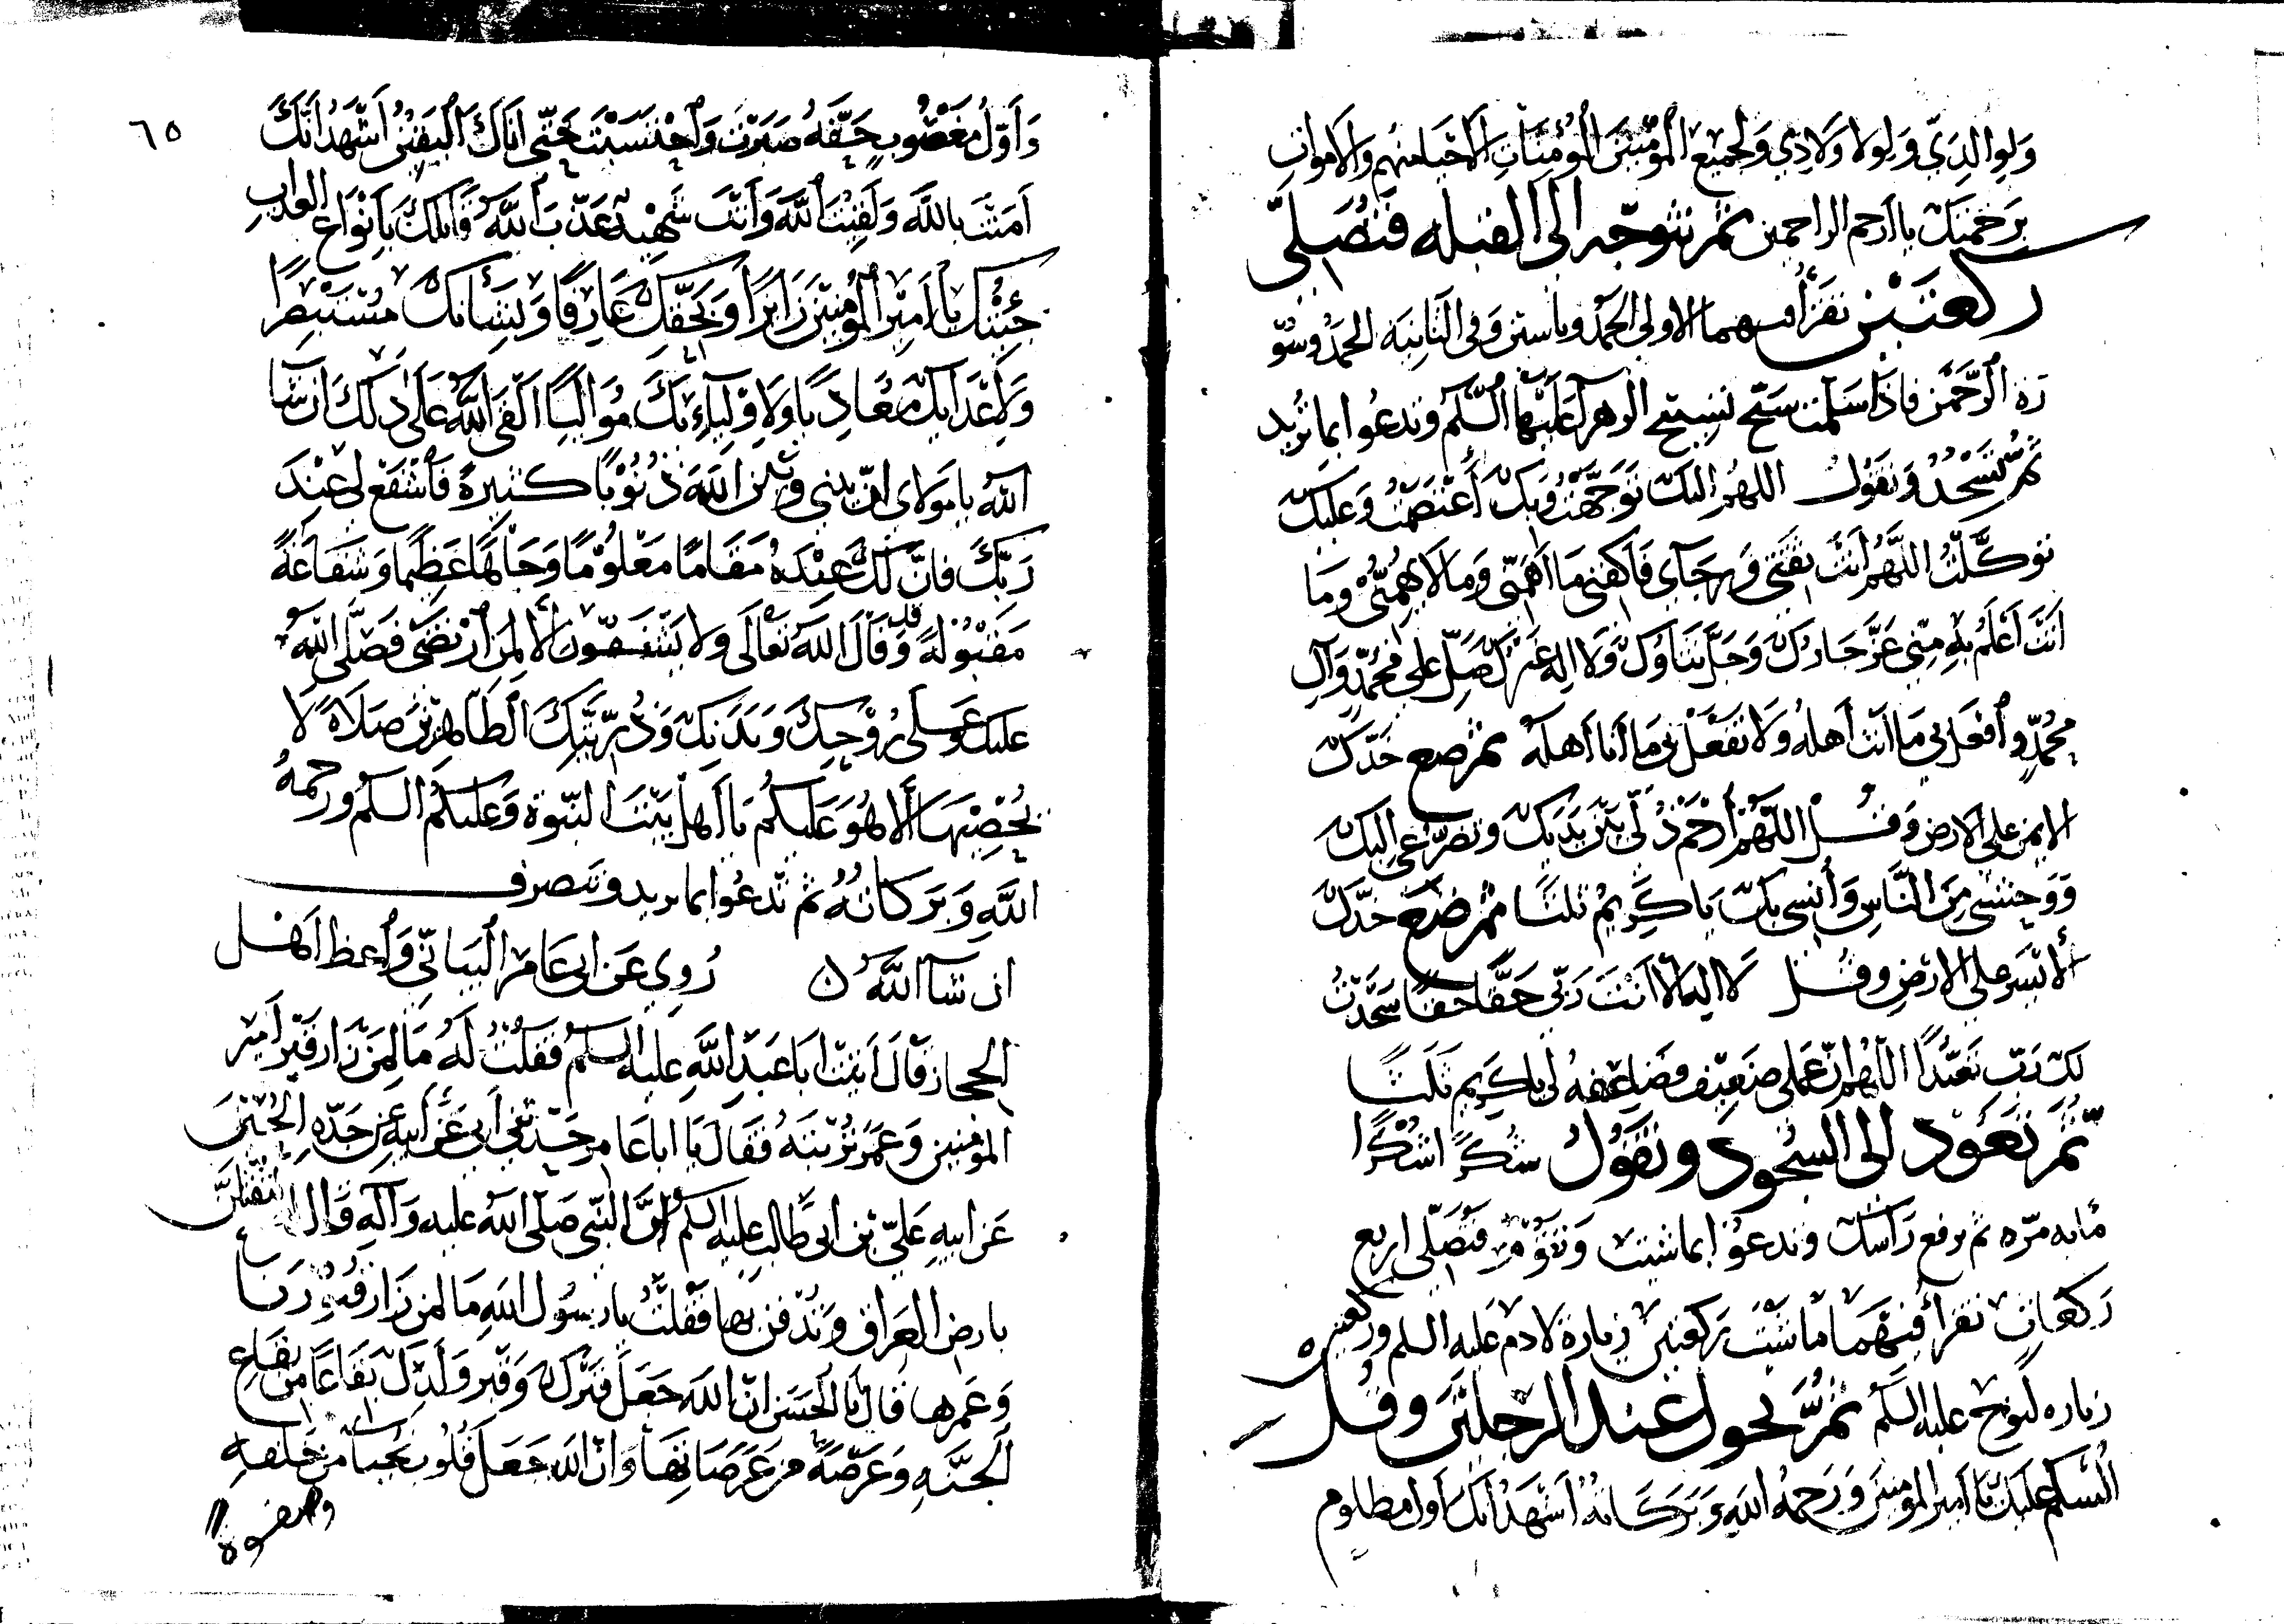 ولوالديّ ولاولادي ولجميع المؤمنين المؤمنات الاحيا منهم والاموات
برحمتك يا ارحم الراحمين ثم تتوجه الى القبله فتصلي
ركعتين تقرأ فيهما الاولى الحمد وياسين وفي الثانية الحمد وسو
رة الرحمن فاذا سلمت سبّح تسبيح الزهرآ عليها السلم وتدعوا بما تريد
ثم تسجد وتقول اللهم اليك توجّهت وبك اعتصمت وعليك
توكّلت اللهم انت ثقتي ورجآي فاكفني ما اهمّني وما لا يهمّني وما
انت اعلم به مني عزّ جارك وجل ثناوك ولا اله غيرك صل على محمد وآل
محمد وافعل بي ما انت اهله ولا تفعل بي ما انا اهله ثم ضع خدّك
الايمن على الارض وقل اللهم ارحم ذلّي بين يديك وتضرّعي اليك
ووحشتي من الناس وأنسي بك يا كريم ثلثا ثم ضع خدّك
الايسر على الارض وقل لا اله الا انت ربّي حقّا حقّا سجدت
لك ربّ تعبّدا اللهم ان عملي ضعيف فضاعفه لي يا كريم ثلثا
ثم تعود الى السجود وتقول شكرًا شكرًا
مايه مرّه ثم ترفع رأسك وتدعوا بما شيت وتقوم فتصلّي اربع
ركعات تقرأ فيهما ما شيت ركعتين زيارة لادم عليه السلم وركعتين
زياره لنوح عليه السلم ثم تحول عند الرجلين وقل
السلم عليك يا امير المومنين ورحمه الله وبركاته اشهد انك اول مظلوم
٦٥
وأوّل مغضوب حقّه صبرت واحتسبت حتّى اتاك اليقين اشهد انّك
امنت بالله ولقيت الله وانت شهيد عذّب الله قاتلك بانواع العذاب
جئتك يا امير المؤمنين زايرًا وبحقّك عارفًا وبشأنك مستبصرًا
ولاعدايك معاديًا ولاوليآءك مواليًا القى الله على ذلك ان شا
الله يا مولاي ان بيني وبين الله ذنوبًا كثيرة فاشفع لي عند
ربّك فان لك عنده مقامًا معلومًا وجاهًا عظيمًا وشفاعةً
مقبولةً وقد قال الله تعالى ولا يشفعون الا لمن ارتضى فصلّى الله
عليك وعلى روحك وبدنك وذرّيتك الطاهرين صلاة لا
يحصيها الا هو عليكم يا اهل بيت النبّوة وعليكم السلم ورحمة
الله وبركاته ثم تدعوا بما تريد وتنصرف
ان شآ الله روي عن ابي عامر البناني واعظ اهل
الحجاز قال اتيت ابا عبد الله عليه السلم فقلت له ما لمن زار قبر امير
المؤمنين وعمر تربته فقال يا ابا عامر حدثني ابي عن ابيه عن جدّه الحسين
عن ابيه عليّ بن ابي طالب عليه السلم انّ النبّي صلى الله عليه وآله قال لتقتلنّ
بارض العراق وتدفن بها فقلت يا رسول الله ما لمن زار قبورنا
وعمرها قال يا بالحسن انّ الله جعل قبرك وقبر ولدك بقاعًا من بقاع
الجنّه وعرصةً من عرصاتها وان الله جعل قلوب نجبا من خلقه
وصفوة